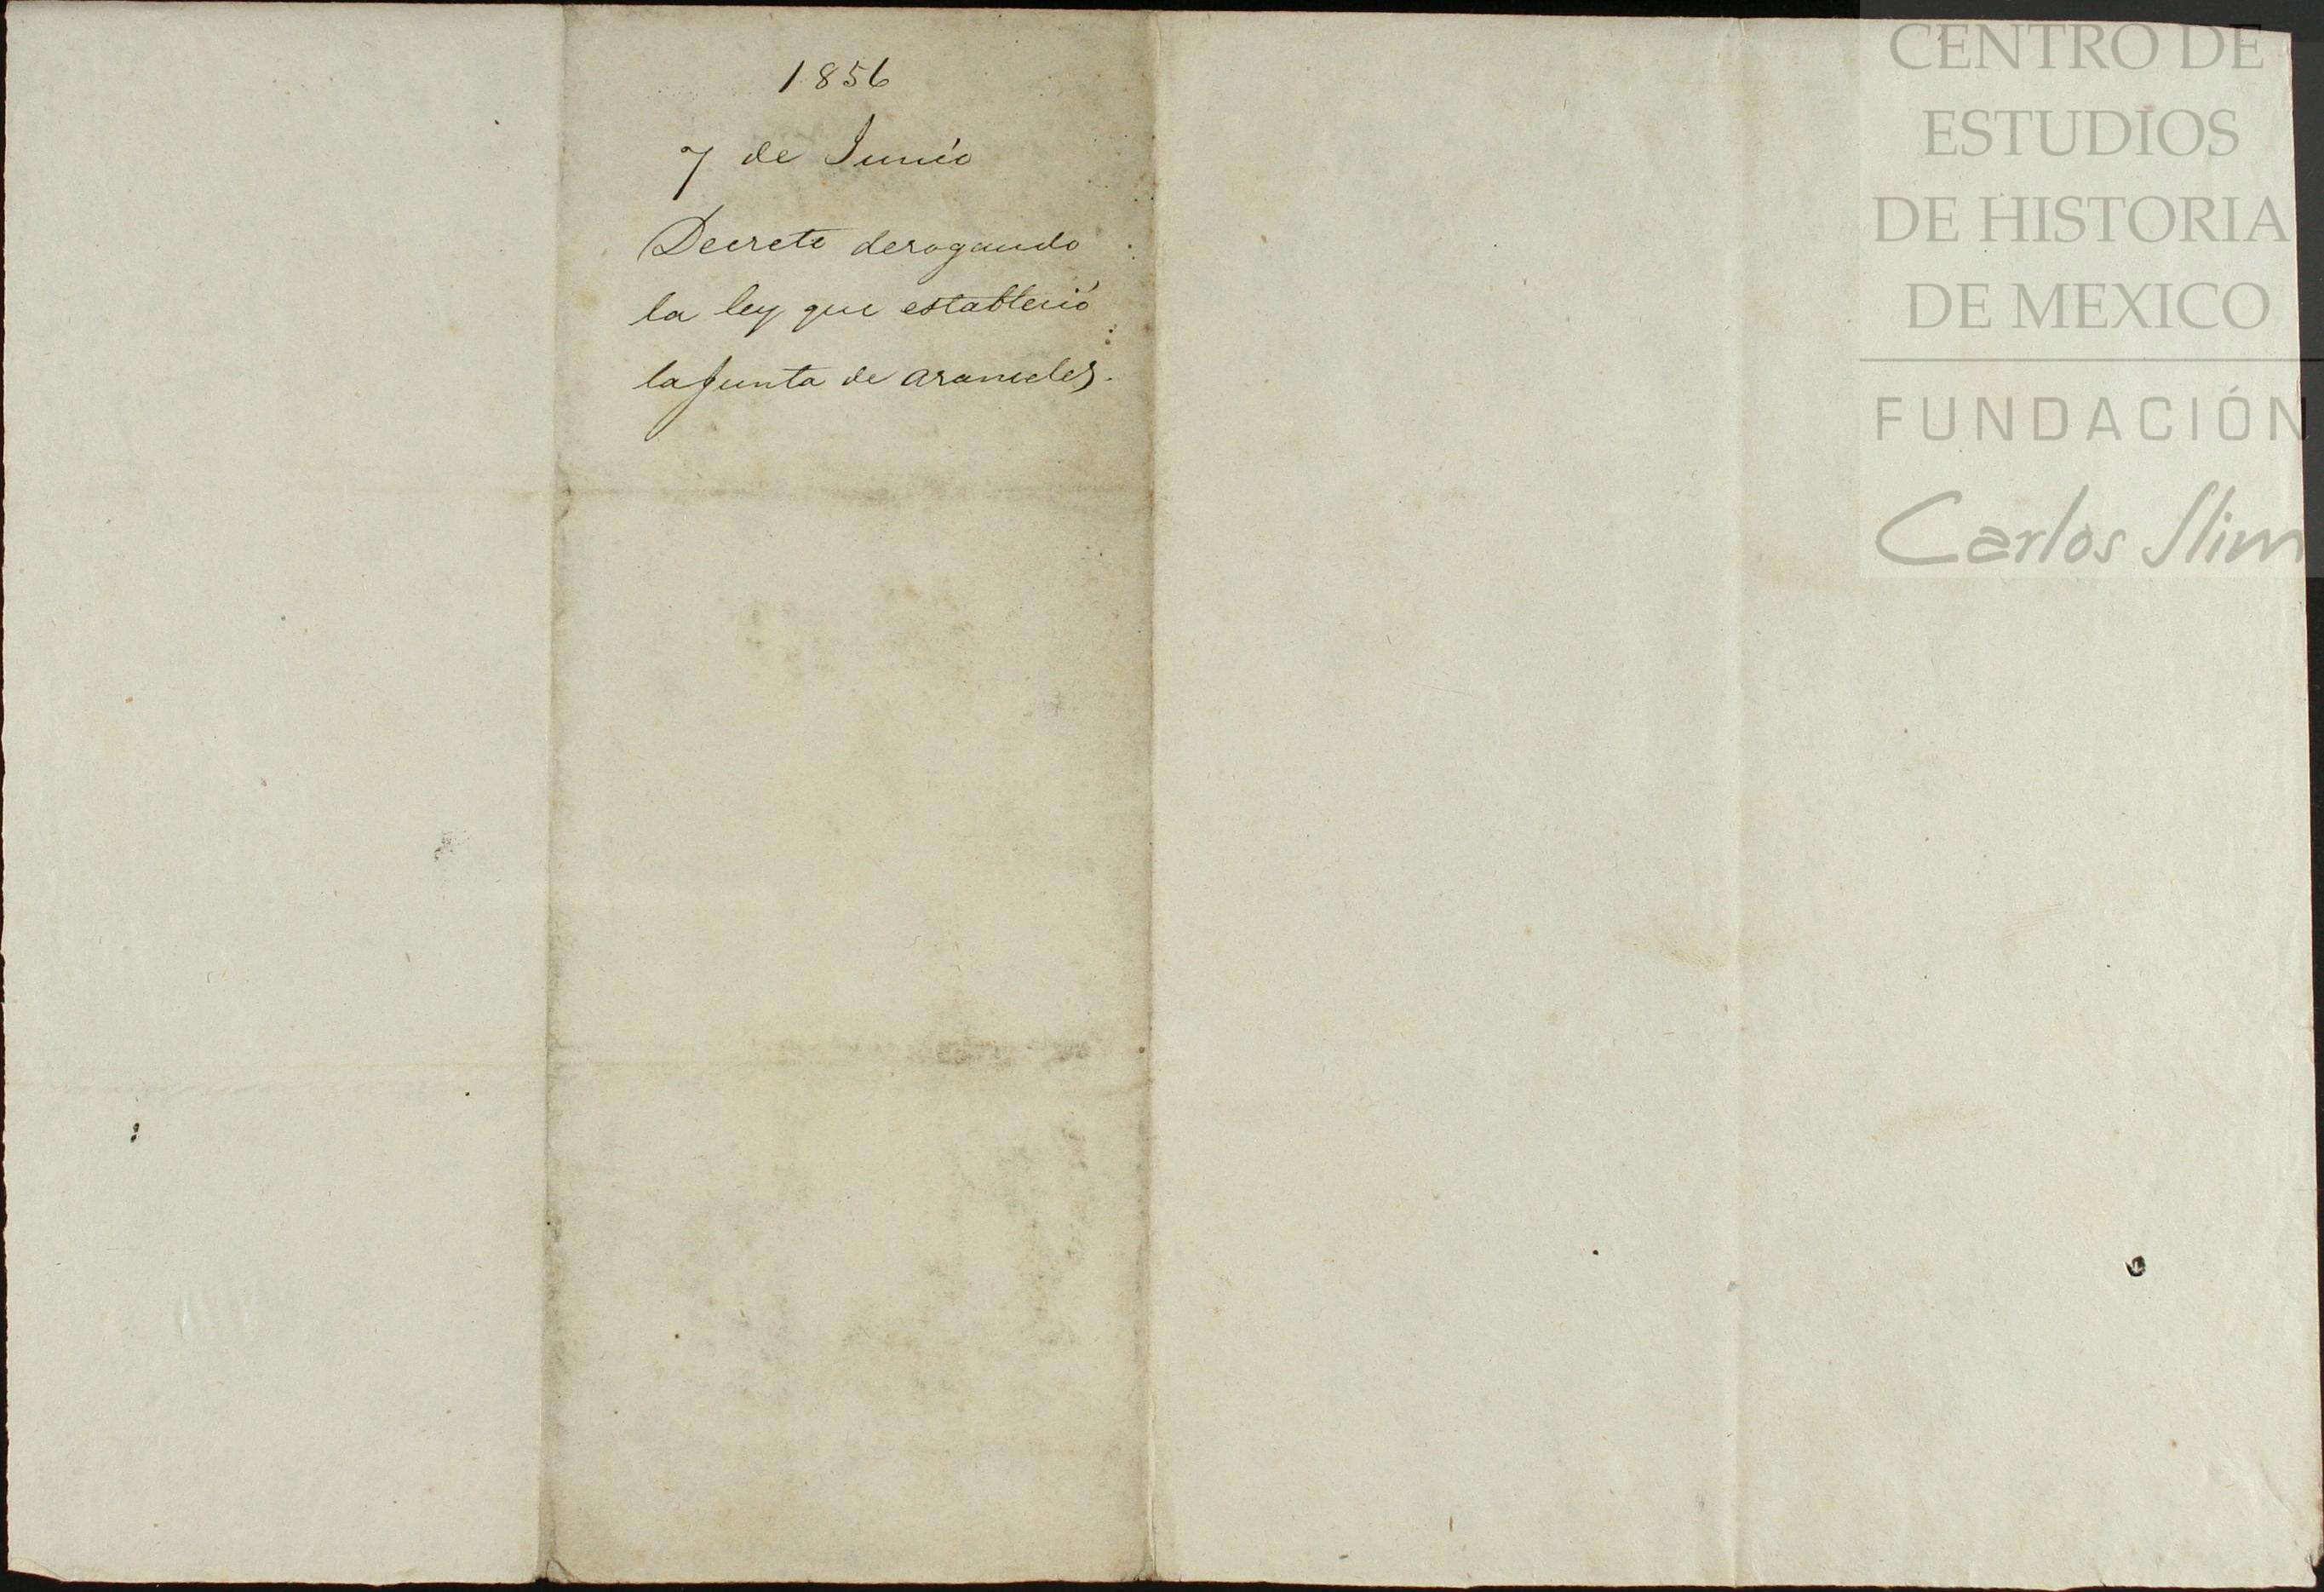 1856
7 de Junio
Decreto derogando
la ley que estableció
la junta de aranceles.
CENTRO DE
ESTUDIOS
DE HISTORIA
DE MEXICO
FUNDACIÓN
Carlos Slim